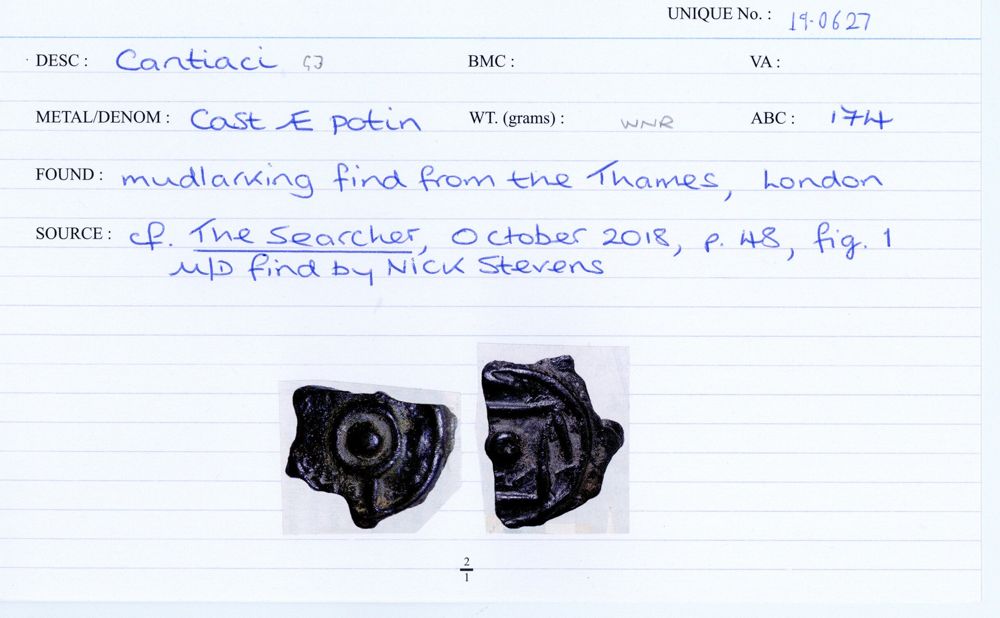 UNIQUE No. : 19.0627
DESC : Cantiaci BMC : VA :
METAL/DENOM : Cast Æ potin WT. (grams) : WNR ABC : 174
FOUND : mudlarking find from the Thames, London
SOURCE : cf. The Searcher, October 2018, p. 48, fig. 1
M/D find by Nick Stevens
2
1